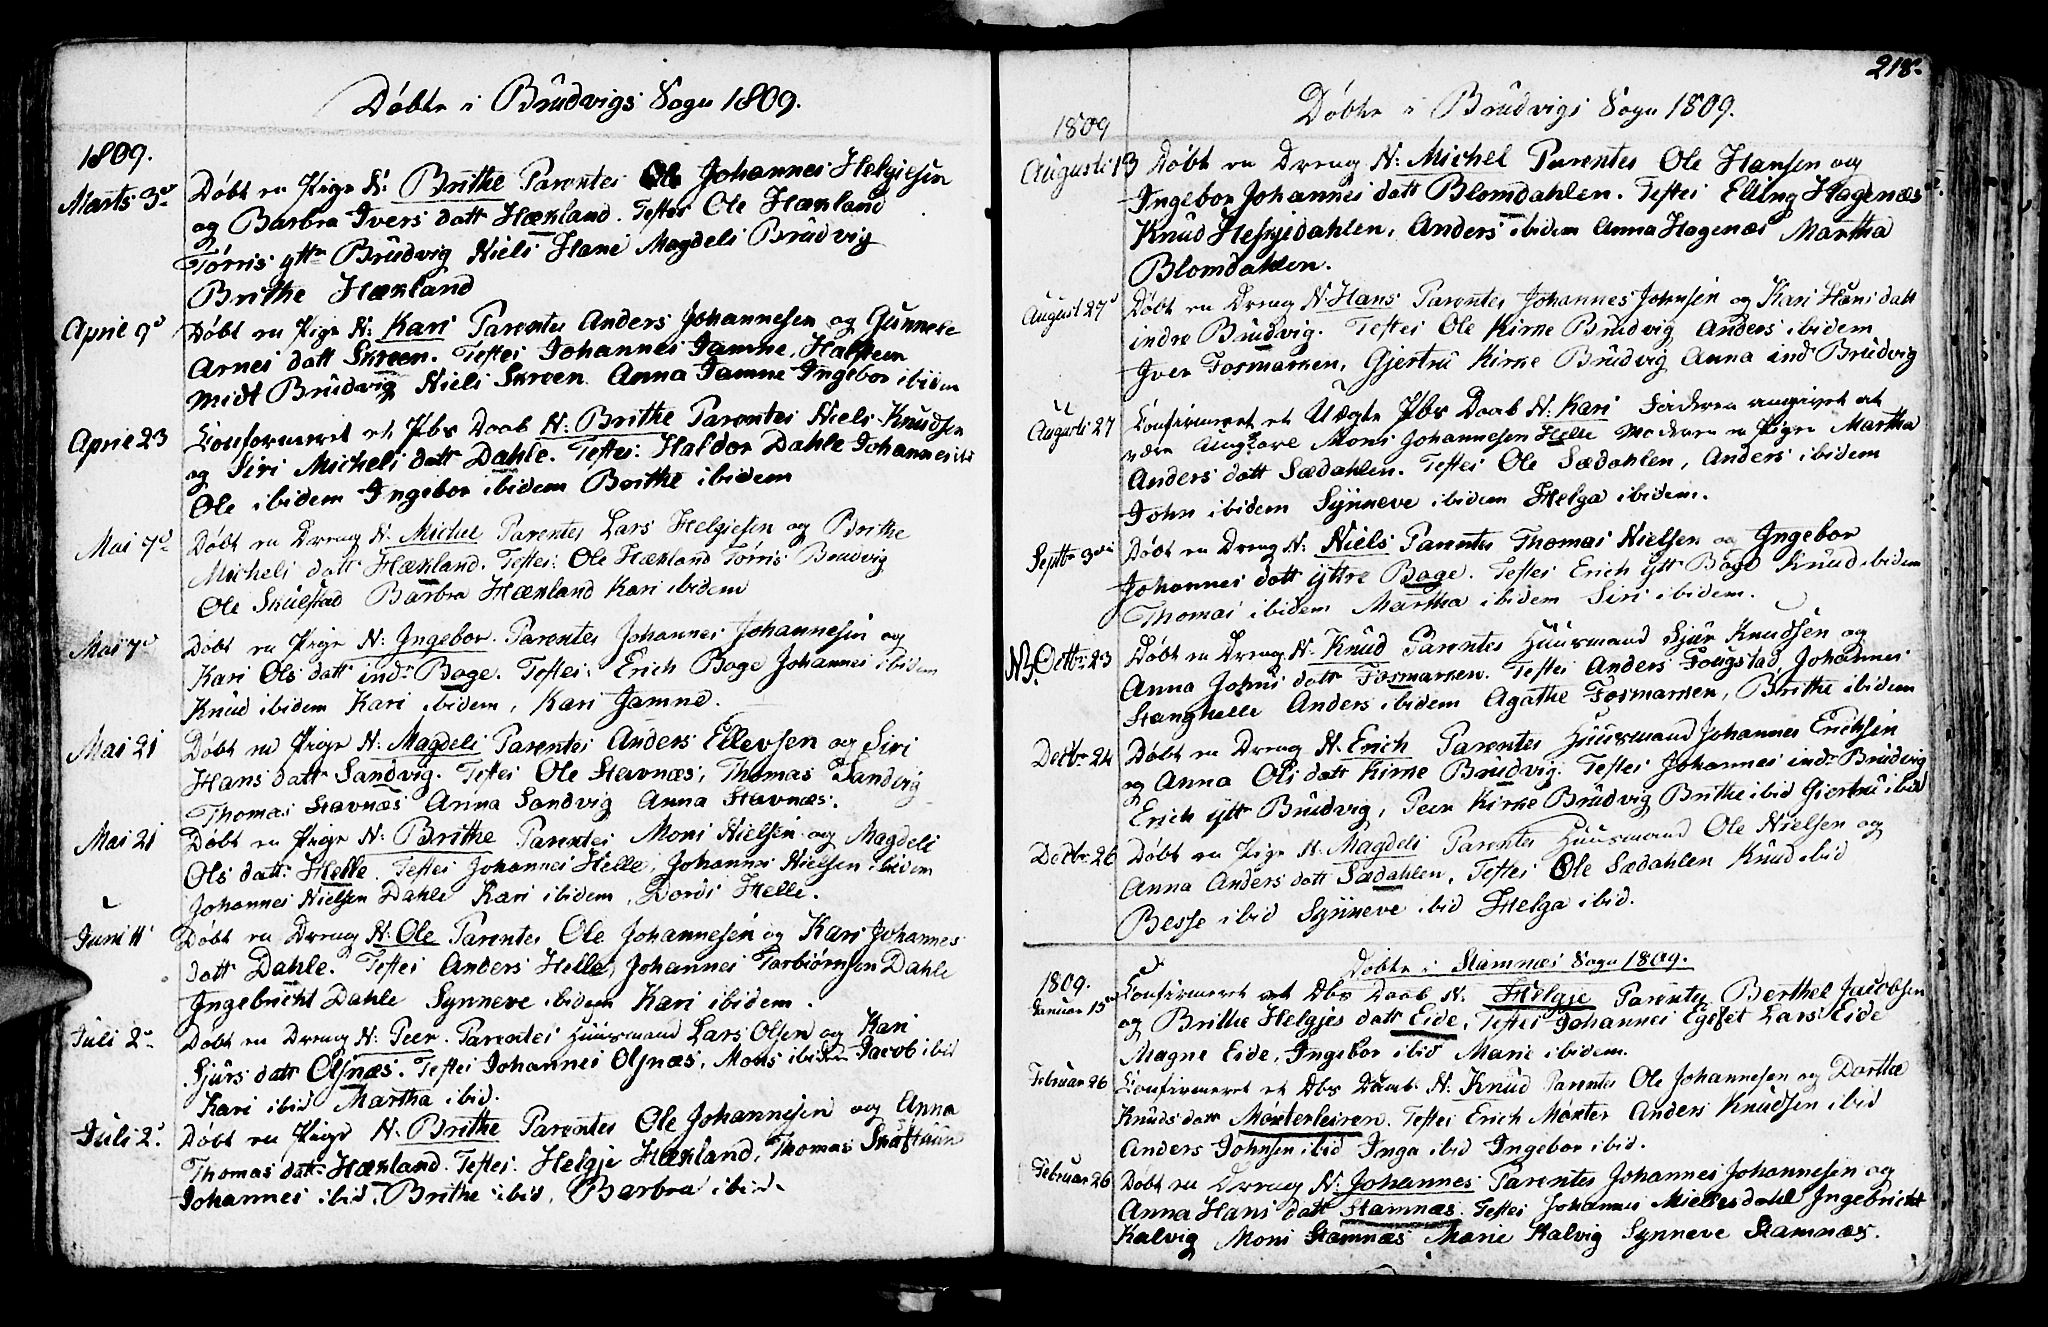 Døbte i Brudvigs Sogn 1809.
1809.
Marts 3d Døbt en Pige N: Brithe Parentes Johannes Helgiesen
og Barbra Ivers datt Hækland. Testes Ole Hækland
Torris ytt Brudvig Niels Hane Magdeli Brudvig
Brithe Hækland
April 9d Døbt en Pige N: Kari Parentes Anders Johannesen og Gunnele
Arnes datt Skreen. Testes Johannes Jamne, Halsteen
midt Brudvig Niels Skreen Anna Jamne Ingebor ibidem
April 23 Confirmeret et Daab N: Brithe Parentes Niels Knudsen
og Siri Michels datt Dahle. Testes: Haldor Dahle Johannes ibd
Ole ibidem Ingebor ibidem Berthe ibidem
Mai 7d Døbt en Dreng N: Michel Parentes Lars Helgiesen og Brithe
Michels datt Hækland. Testes: Ole Hækland Torris Brudvig
Ole Skulstad Barbra Hækland Kari ibidem
Mai 7d Døbt en Pige N: Ingebor. Parentes Johannes Johannesen og
Kari Ols datt indr Boge. Testes: Erich Boge Johannes ibidem
Knud ibidem Kari ibidem, Kari Jamne.
Mai 21 Døbt en Pige N: Magdeli Parentes Anders Ellevsen og Siri
Hans datt Sandvig. Testes Ole Stavnæs, Thomas Sandvig
Thomas Stavnæs Anna Sandvig Anna Stavnæs.
Mai 21 Døbt en Pige N: Brithe Parentes Mons Nielsen og Magdeli
Ols datt: Helle. Testes Johannes Helle, Johannes Nielsen ibidem
Johannes Nielsen Dahle Kari ibidem, Dordi Helle.
Juni 11 Døbt en Dreng N: Ole Parentes Ole Johannesen og Kari Johannes
datt Dahle. Testes Anders Helle, Johannes Torbiørnsen Dahle
Ingebricht Dahle Synneve ibidem Kari ibidem.
Juli 2d Døbt en Dreng N: Peer. Parentes Huusmand Lars Olsen og Kari
Sjurs datt Olsnæs. Testes Johannes Olsnæs, Mons ibidem Jacob ibid
Kari ibid Martha ibid.
Juli 2d Døbt en Pige N: Brithe Parentes Ole Johannesen og Anna
Thomas datt Hækland. Testes: Helgje Hækland, Thomas Skaftun
Johannes ibid, Brithe ibid, Barbra ibid.
218.
Døbte i Brudvigs Sogn 1809.
1809
Augusti 13 Døbt en Dreng N: Michel Parentes Ole Hansen og
Ingebor Johannes datt Blomdahlen. Testes Elling Hagenæs
Knud Heskjedahlen, Anders ibidem Anna Hagenæs Martha
Blomdahlen.
August 27d Døbt en Dreng N: Hans Parentes Johannes Johnsen og Kari Hans datt
indre Brudvig. Testes Ole Kirke Brudvig Anders ibidem
Iver Fosmarken, Gjertru Kirke Brudvig Anna ind Brudvig
Augusti 27 Confirmeret et Uægte Daab N: Kari Faderen angivet at
være Mons Johannesen Helle Moderen en Pige Martha
Anders datt Sædahlen. Testes Ole Sædahlen, Anders ibidem
John ibidem Synneve ibidem Helga ibidem.
Septbr 3die Døbt en Dreng N: Niels Parentes Thomas Nielsen og Ingebor
Johannes datt yttre Boge. Testes Erich ytt Boge Knud ibidem
Thomas ibidem Martha ibidem Siri ibidem.
Octbr 23 Døbt en Dreng N: Knud Parentes Huusmand Sjur Knudsen og
Anna Johns datt Fosmarken. Testes Anders Fougstad, Johannes
Stanghelle Anders ibidem Agathe Fosmarken, Brithe ibidem
Decbr 24 Døbt en Dreng N. Erich Parentes Huusmand Johannes Erichsen
og Anna Ols datt Kirke Brudvig. Testes Johannes indr Brudvig
Erich ytt Brudvig, Peer Kirke Brudvig Brithe ibid Giertru ibid
Decbr 26 Døbt en Pige N: Magdeli Parentes Huusmand Ole Nielsen og
Anna Anders datt Sædahlen, Testes Ole Sædahlen Knud ibid
Besse ibid Synneve ibid Helga ibid.
Døbte i Stamnæs Sogn 1809.
1809.
Januar 15 Confirmeret et Daab N. Helgje Parentes Berthel Jacobsen
og Brithe Helgjes datt Eide, Testes Johannes Lars Eide
Magne Eide, Ingebor ibid Marie ibidem.
Februar 26 Confirmeret et Daab N: Knud Parentes Ole Johannesen og Dorthe
Knuds datt Moxterleiren. Testes Erich Moxter Anders Knudsen ibid
Anders Johnsen ibid Inga ibid Ingebor ibid.
Februar 26 Døbt en Dreng N: Johannes Parentes Johannes Johannesen og
Anna Hans datt Stamnæs. Testes Johannes Ingebricht
Kalvig Mons Stamnæs Marie Kalvig Synneve Stamnæs.